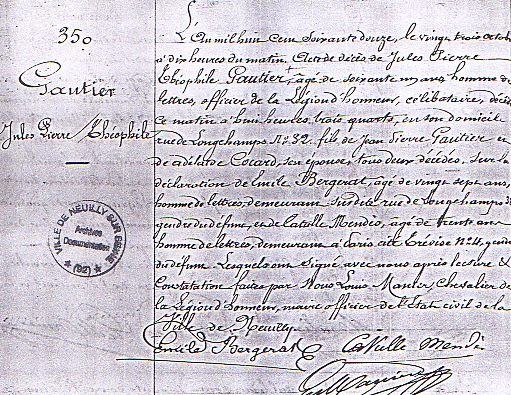 350
Gautier
Jules Pierre Théophile
VILLE DE NEUILLY SUR SEINE
Archives
Documentation
(92)
L'An mil huit cent soixante douze, le vingt trois octobre
à dix heures du matin. Acte de décès de Jules Pierre
Théophile Gautier, agé de soixante un ans, homme de
lettres, officier de la Légion d'honneur, célibataire, décédé
ce matin à huit heures trois quarts, en son domicile
rue de Longchamps No. 32. fils de Jean Pierre Gautier et
de adélaïde Cocard, son épouse, tous deux décédés, Sur la
déclaration de Emile Bergerat, agé de vingt sept ans,
homme de lettres, demeurant susdite rue de Longchamps
gendre du défunt, et de Catulle Mendès, agé de trente ans
homme de lettres, demeurant à Paris cité Trévise No.
du défunt. Lesquels ont signé avec nous après lecture &
Constatation faites par Nous Louis Chevalier de
la Légion d'honneur, maire officier de l'Etat civil de la
Ville de Neuilly.
Emile Bergerat Catulle Mendès